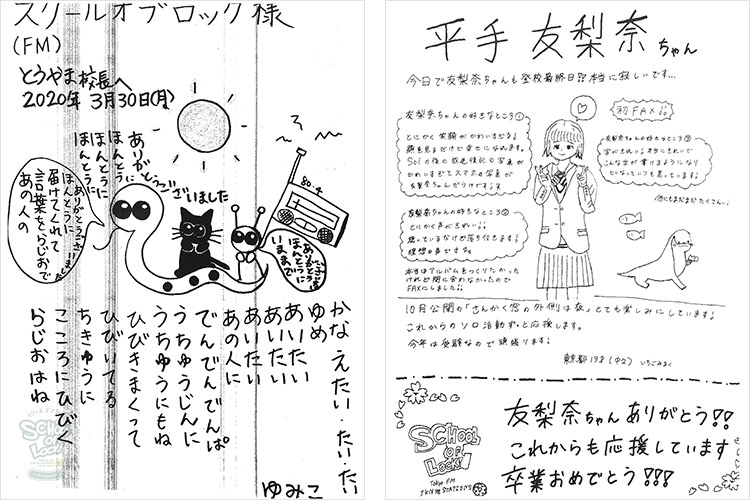 スクールオブロック様
(FM)
とうやま校長へ
2020年 3月30日(月)
ありがとうございました
ほんとうに
ほんとうに
ほんとうに
80.4
ほんとうに
届けてくれて
言葉をらじおで
あの人の
ほんとうに
いままで
かなえたい・たい・たい
ゆめ
あいたい
あいたい
あいたい
あの人に
でんでんでんぱ
うちゅうじんに
うちゅうにもね
ひびきまくって
ひびいてる
ちきゅうに
こころにひびく
らじおはね
ゆみこ
平手 友梨奈ちゃん
今日で友梨奈ちゃんも登校最終日!!本当に寂しいです…
初FAX
友梨奈ちゃんの好きなところ①
とにかく笑顔がかわいすぎる!
顔を見るだけで幸せになれます。
友梨奈ちゃんだらけです
友梨奈ちゃんの好きなところ②
とにかく声がきれい。
聴いているだけで落ち付きます!
理想の声です。
友梨奈ちゃんの好きなところ③
本当はアルバムをつくりたかった
けれど間に合わなかったので
FAXにしました!!
10月公開の「さんかく窓の外側は夜」とても楽しみにしています!
これからのソロ活動ずっと応援します。
今年は受験なので頑張ります!
東京都 13才(中2) いちごみるく
SCHOOL
OF
LOCK!
Tokyo FM
JFN 38 STATIONS
友梨奈ちゃんありがとう!!
これからも応援しています
卒業おめでとう!!!